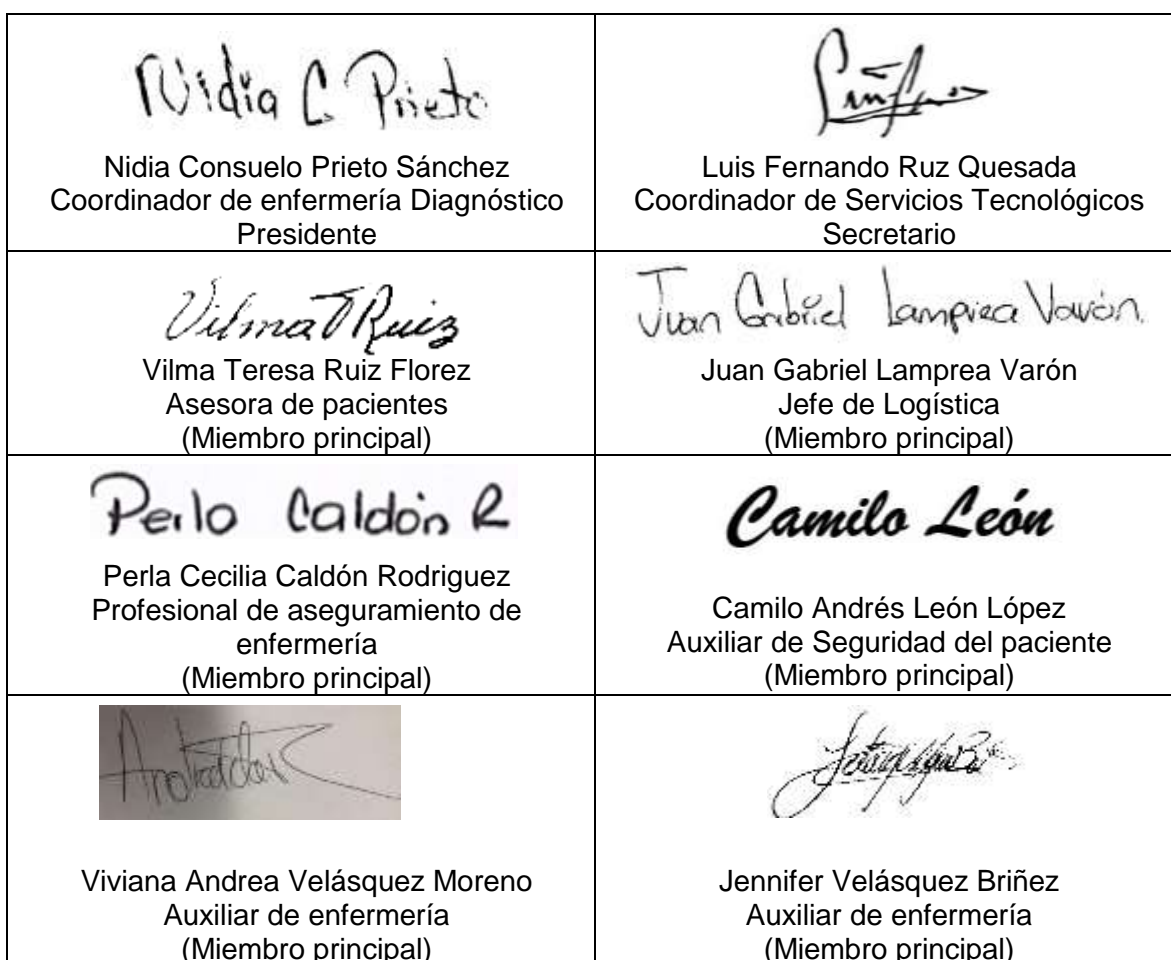 Nidia C. Prieto
Nidia Consuelo Prieto Sánchez
Coordinador de enfermería Diagnóstico
Presidente
Luis Fernando Ruz Quesada
Coordinador de Servicios Tecnológicos
Secretario
Vilma T Ruiz
Vilma Teresa Ruiz Florez
Asesora de pacientes
(Miembro principal)
Juan Gabriel Lamprea Varón
Juan Gabriel Lamprea Varón
Jefe de Logística
(Miembro principal)
Perla Caldón R
Perla Cecilia Caldón Rodriguez
Profesional de aseguramiento de
enfermería
(Miembro principal)
Camilo León
Camilo Andrés León López
Auxiliar de Seguridad del paciente
(Miembro principal)
Viviana Andrea Velásquez Moreno
Auxiliar de enfermería
(Miembro principal)
Jennifer Velásquez Briñez
Auxiliar de enfermería
(Miembro principal)